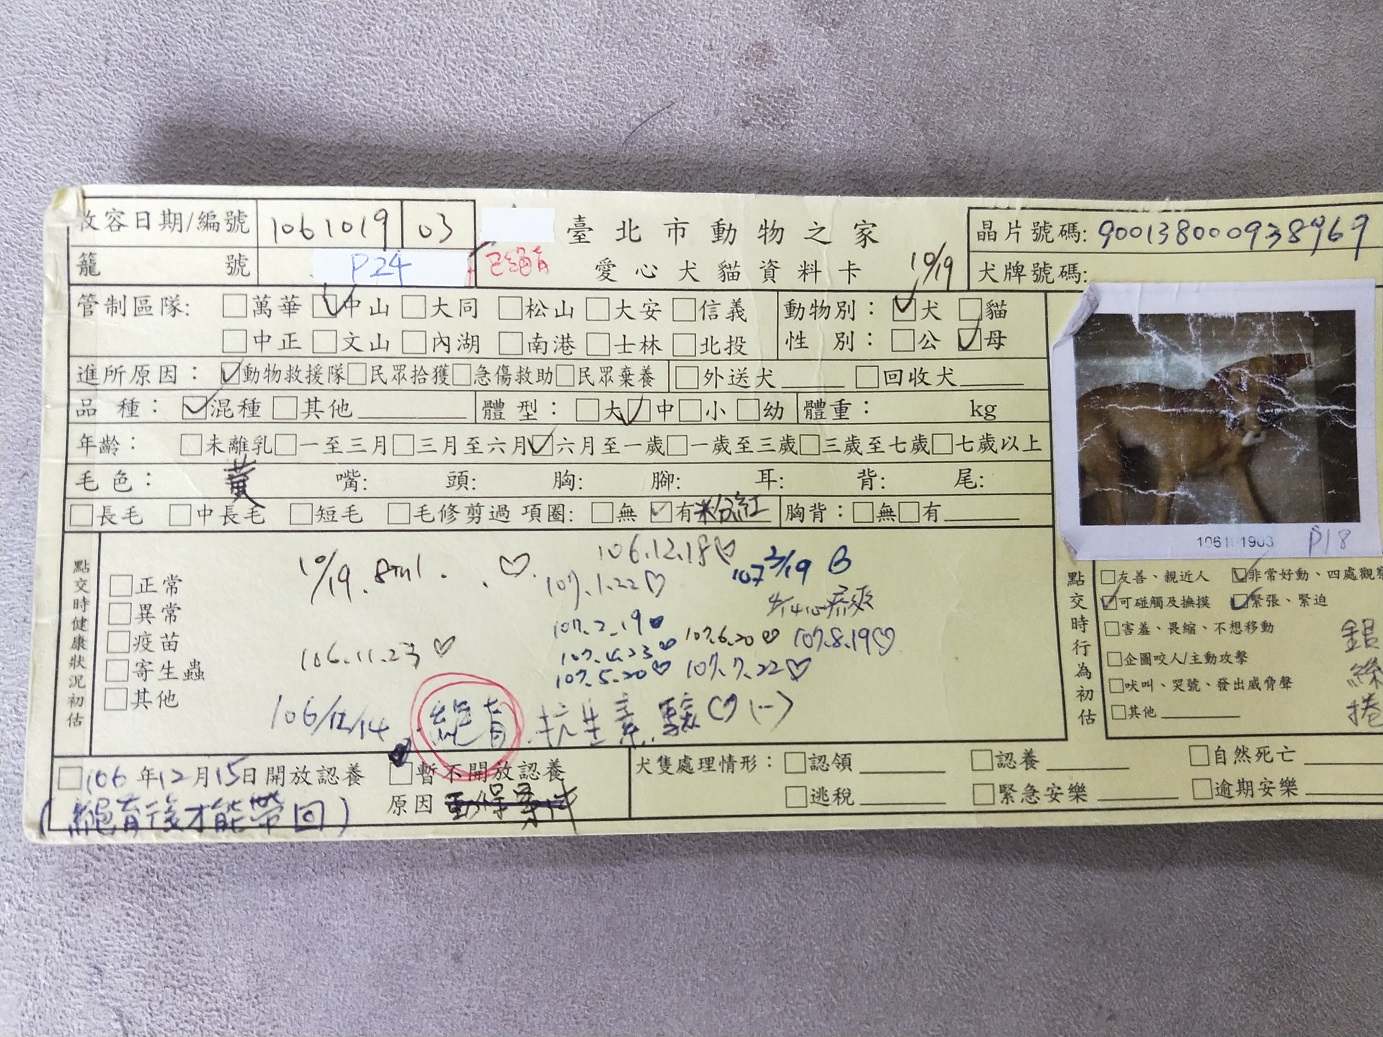 收容日期/編號 1061019 03
臺北市動物之家
晶片號碼: 900138000938969
籠號 P24
已絕育
愛心犬貓資料卡 10/19
犬牌號碼:
管制區隊: □萬華 ☑中山 □大同 □松山 □大安 □信義 動物別: ☑犬 □貓
□中正 □文山 □內湖 □南港 □士林 □北投 性別: □公 ☑母
進所原因: ☑動物救援隊 □民眾拾獲 □急傷救助 □民眾棄養 □外送犬 □回收犬
品種: ☑混種 □其他 體型: □大 ☑中 □小 □幼 體重: kg
年齡: □未離乳 □一至三月 □三月至六月 ☑六月至一歲 □一歲至三歲 □三歲至七歲 □七歲以上
毛色: 黃 嘴: 頭: 胸: 腳: 耳: 背: 尾:
□長毛 □中長毛 □短毛 □毛修剪過 項圈: □無 ☑有粉紅 胸背: □無 □有
P18
點交時健康狀況初估
□正常
□異常
□疫苗
□寄生蟲
□其他
10/19. 8ml. ♡
106.12.18♡
107.1.22♡
107 2/19 B
107.2.19♥
106.11.23♡
107.4.23♡ 107.6.20♡ 107.8.19♡
107.5.20♡ 107.7.22♡
106/12/14 絕育 抗生素 驅(♡)(-)
點交時行為初估
□友善、親近人 ☑非常好動、四處觀察
☑可碰觸及撫摸 ☑緊張、緊迫
□害羞、畏縮、不想移動
□企圖咬人/主動攻擊
□吠叫、哭號、發出威脅聲
□其他
銀
絲
捲
□106年12月15日開放認養 □暫不開放認養
(絕育後才能帶回)
原因 動保案件
犬隻處理情形: □認領 □認養 □自然死亡
□逃稅 □緊急安樂 □逾期安樂